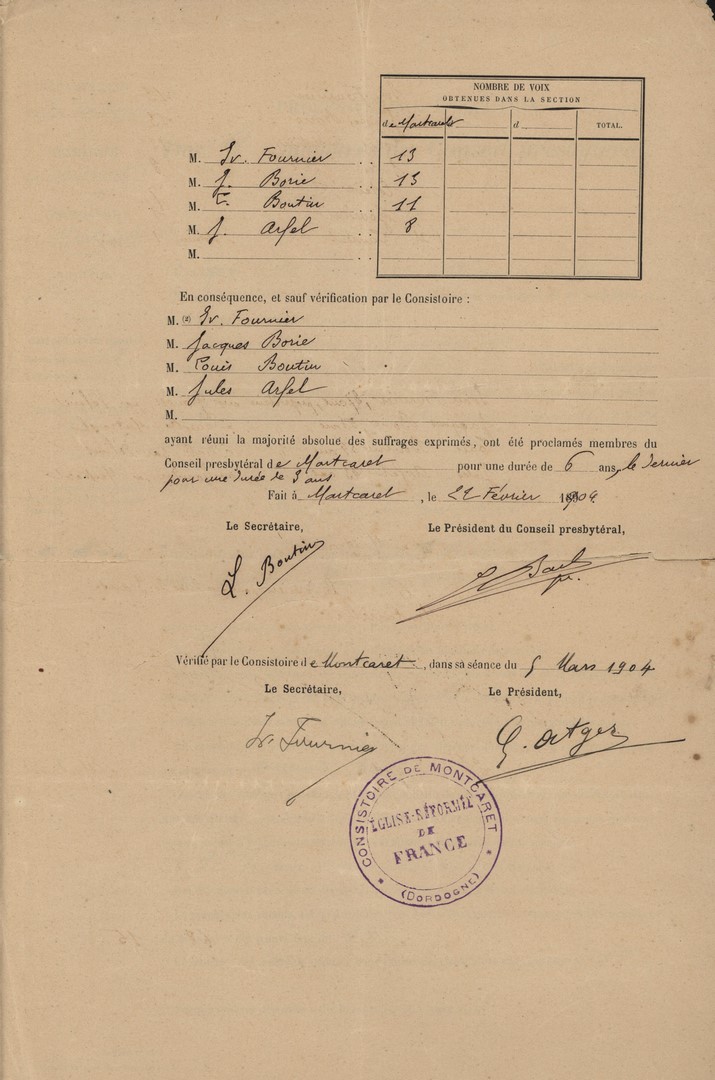 NOMBRE DE VOIX
OBTENUES DANS LA SECTION
de Montcaret d TOTAL.
M. Fournier 13
M. J. Borie 13
M. Boutin 11
M. J. Arfel 8
M.
En conséquence, et sauf vérification par le Consistoire :
M. (2) Fournier
M. Jacques Borie
M. Louis Boutin
M. Jules Arfel
M.
ayant réuni la majorité absolue des suffrages exprimés, ont été proclamés membres du
Conseil presbytéral de Montcaret pour une durée de 6 ans, le dernier
pour une durée de 3 ans
Fait à Montcaret, le Février 1904
Le Secrétaire, Le Président du Conseil presbytéral,
L. Boutin
Vérifié par le Consistoire de Montcaret, dans sa séance du 5 Mars 1904
Le Secrétaire, Le Président,
Fournier G. Atger
CONSISTOIRE DE MONTCARET
ÉGLISE-RÉFORMÉE
DE
FRANCE
(DORDOGNE)